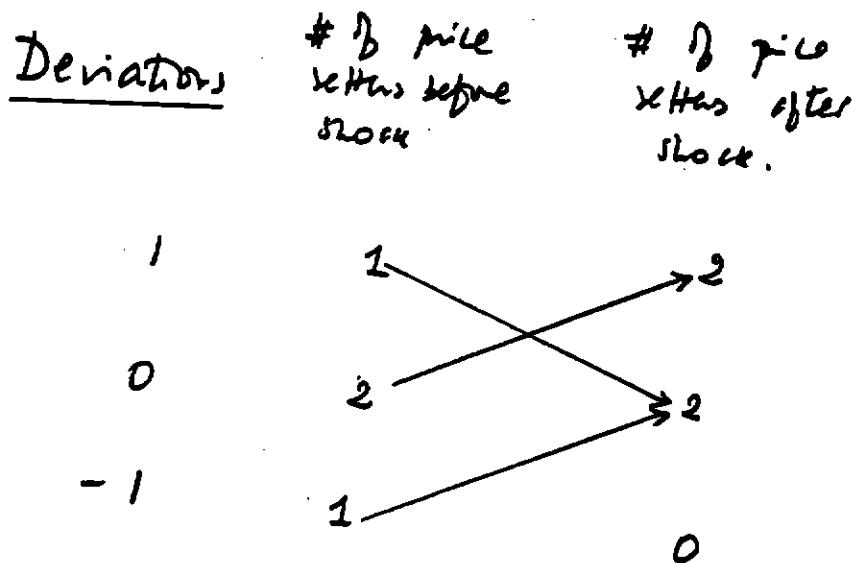 Deviations
# of price
setters before
shock
# of price
setters after
shock.
1 1 2
0 2 2
-1 1 0